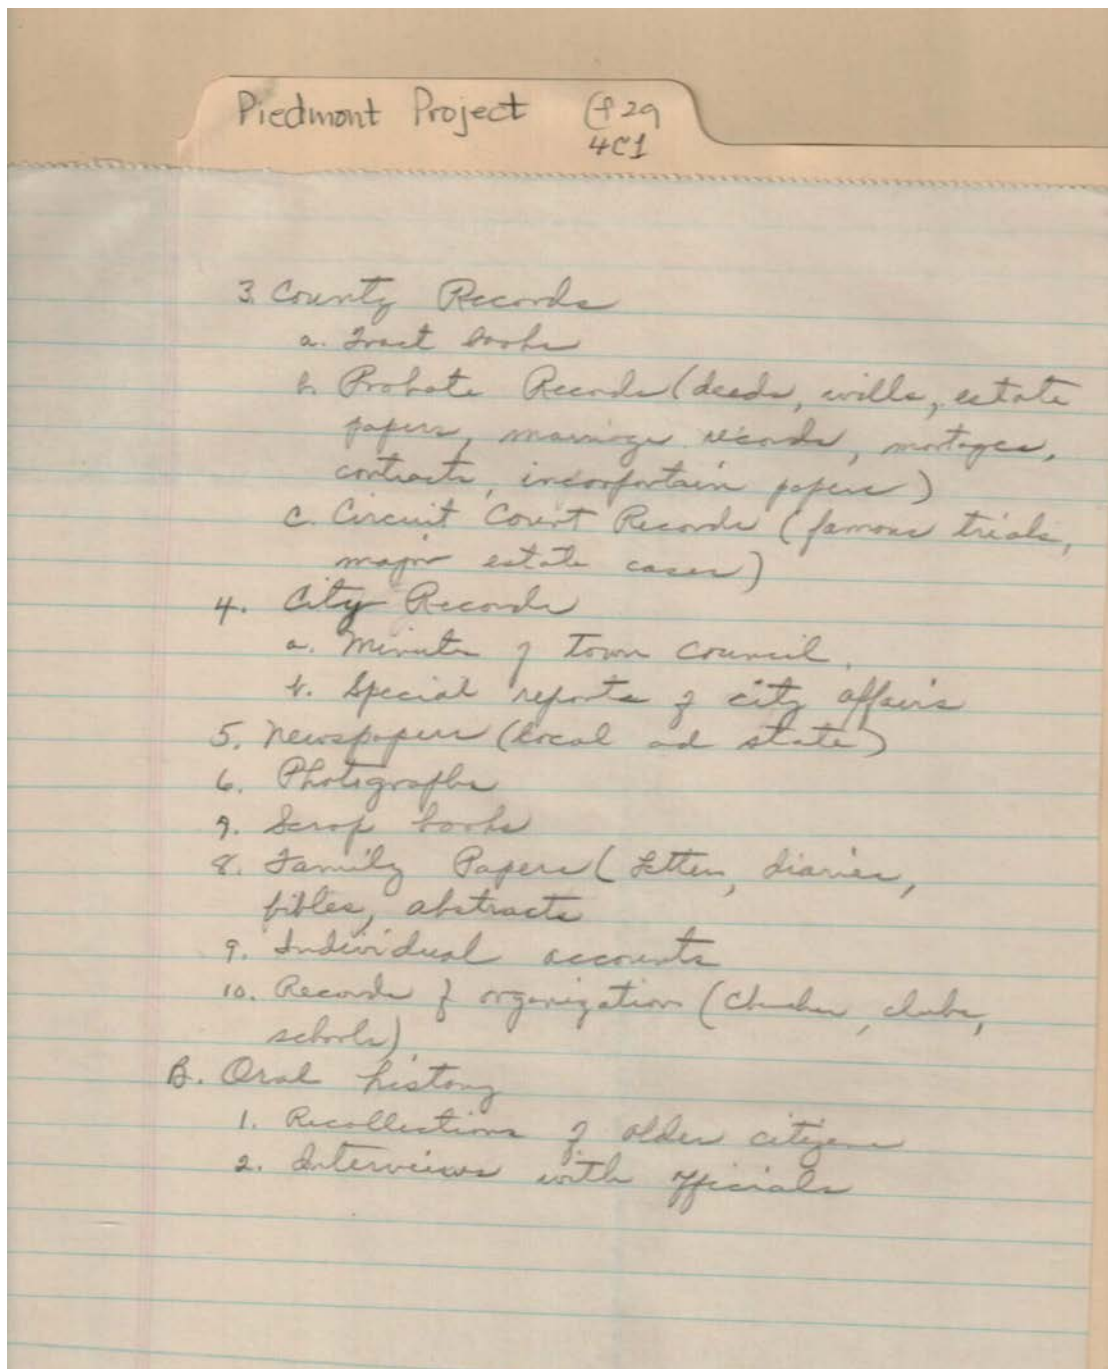 Piedmont Project (f 29
4C1
3. County Records
a. Tract books
b. Probate Records (deeds, wills, estate
papers, marriage records, mortages,
contracts, papers)
c. Circuit Court Records (famous trials,
major estate cases)
4. City Records
a. Minutes of town council,
b. Special reports of city affairs
5. Newspapers (local ad state)
6. Photographs
7. Scrap books
8. Family Papers (Letters, diaries,
bibles, abstracts
9. Individual accounts
10. Records of organizations (Churches, clubs,
schools)
B. Oral history
1. Recollections of older citizens
2. Interviews with officials